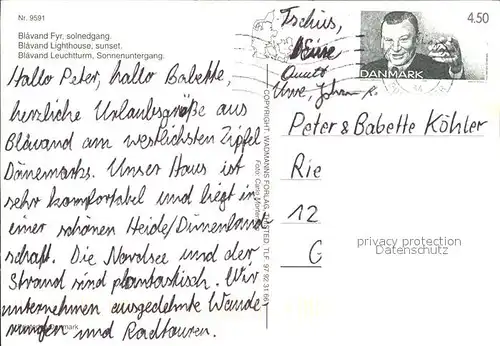 Nr. 9591
Blåvand Fyr, solnedgang.
Blåvand Lighthouse, sunset.
Blåvand Leuchtturm, Sonnenuntergang.
Hallo Peter, hallo Babette,
herzliche Urlaubsgrüße aus
Blåvand am westlichsten Zipfel
Dänemarks. Unser Haus ist
sehr komfortabel und liegt in
einer schönen Heide/Dünenland
schaft. Die Nordsee und der
Strand sind phantastisch. Wir
unternehmen ausgedehnte Wande-
rungen und Radtouren.
Tschüss,
Uwe
4.50
DANMARK
Peter & Babette Köhler
Rie
12
G
privacy protection
Datenschutz
COPYRIGHT: WADMANNS FORLAG, TLF. 97 92 31 66
Foto: